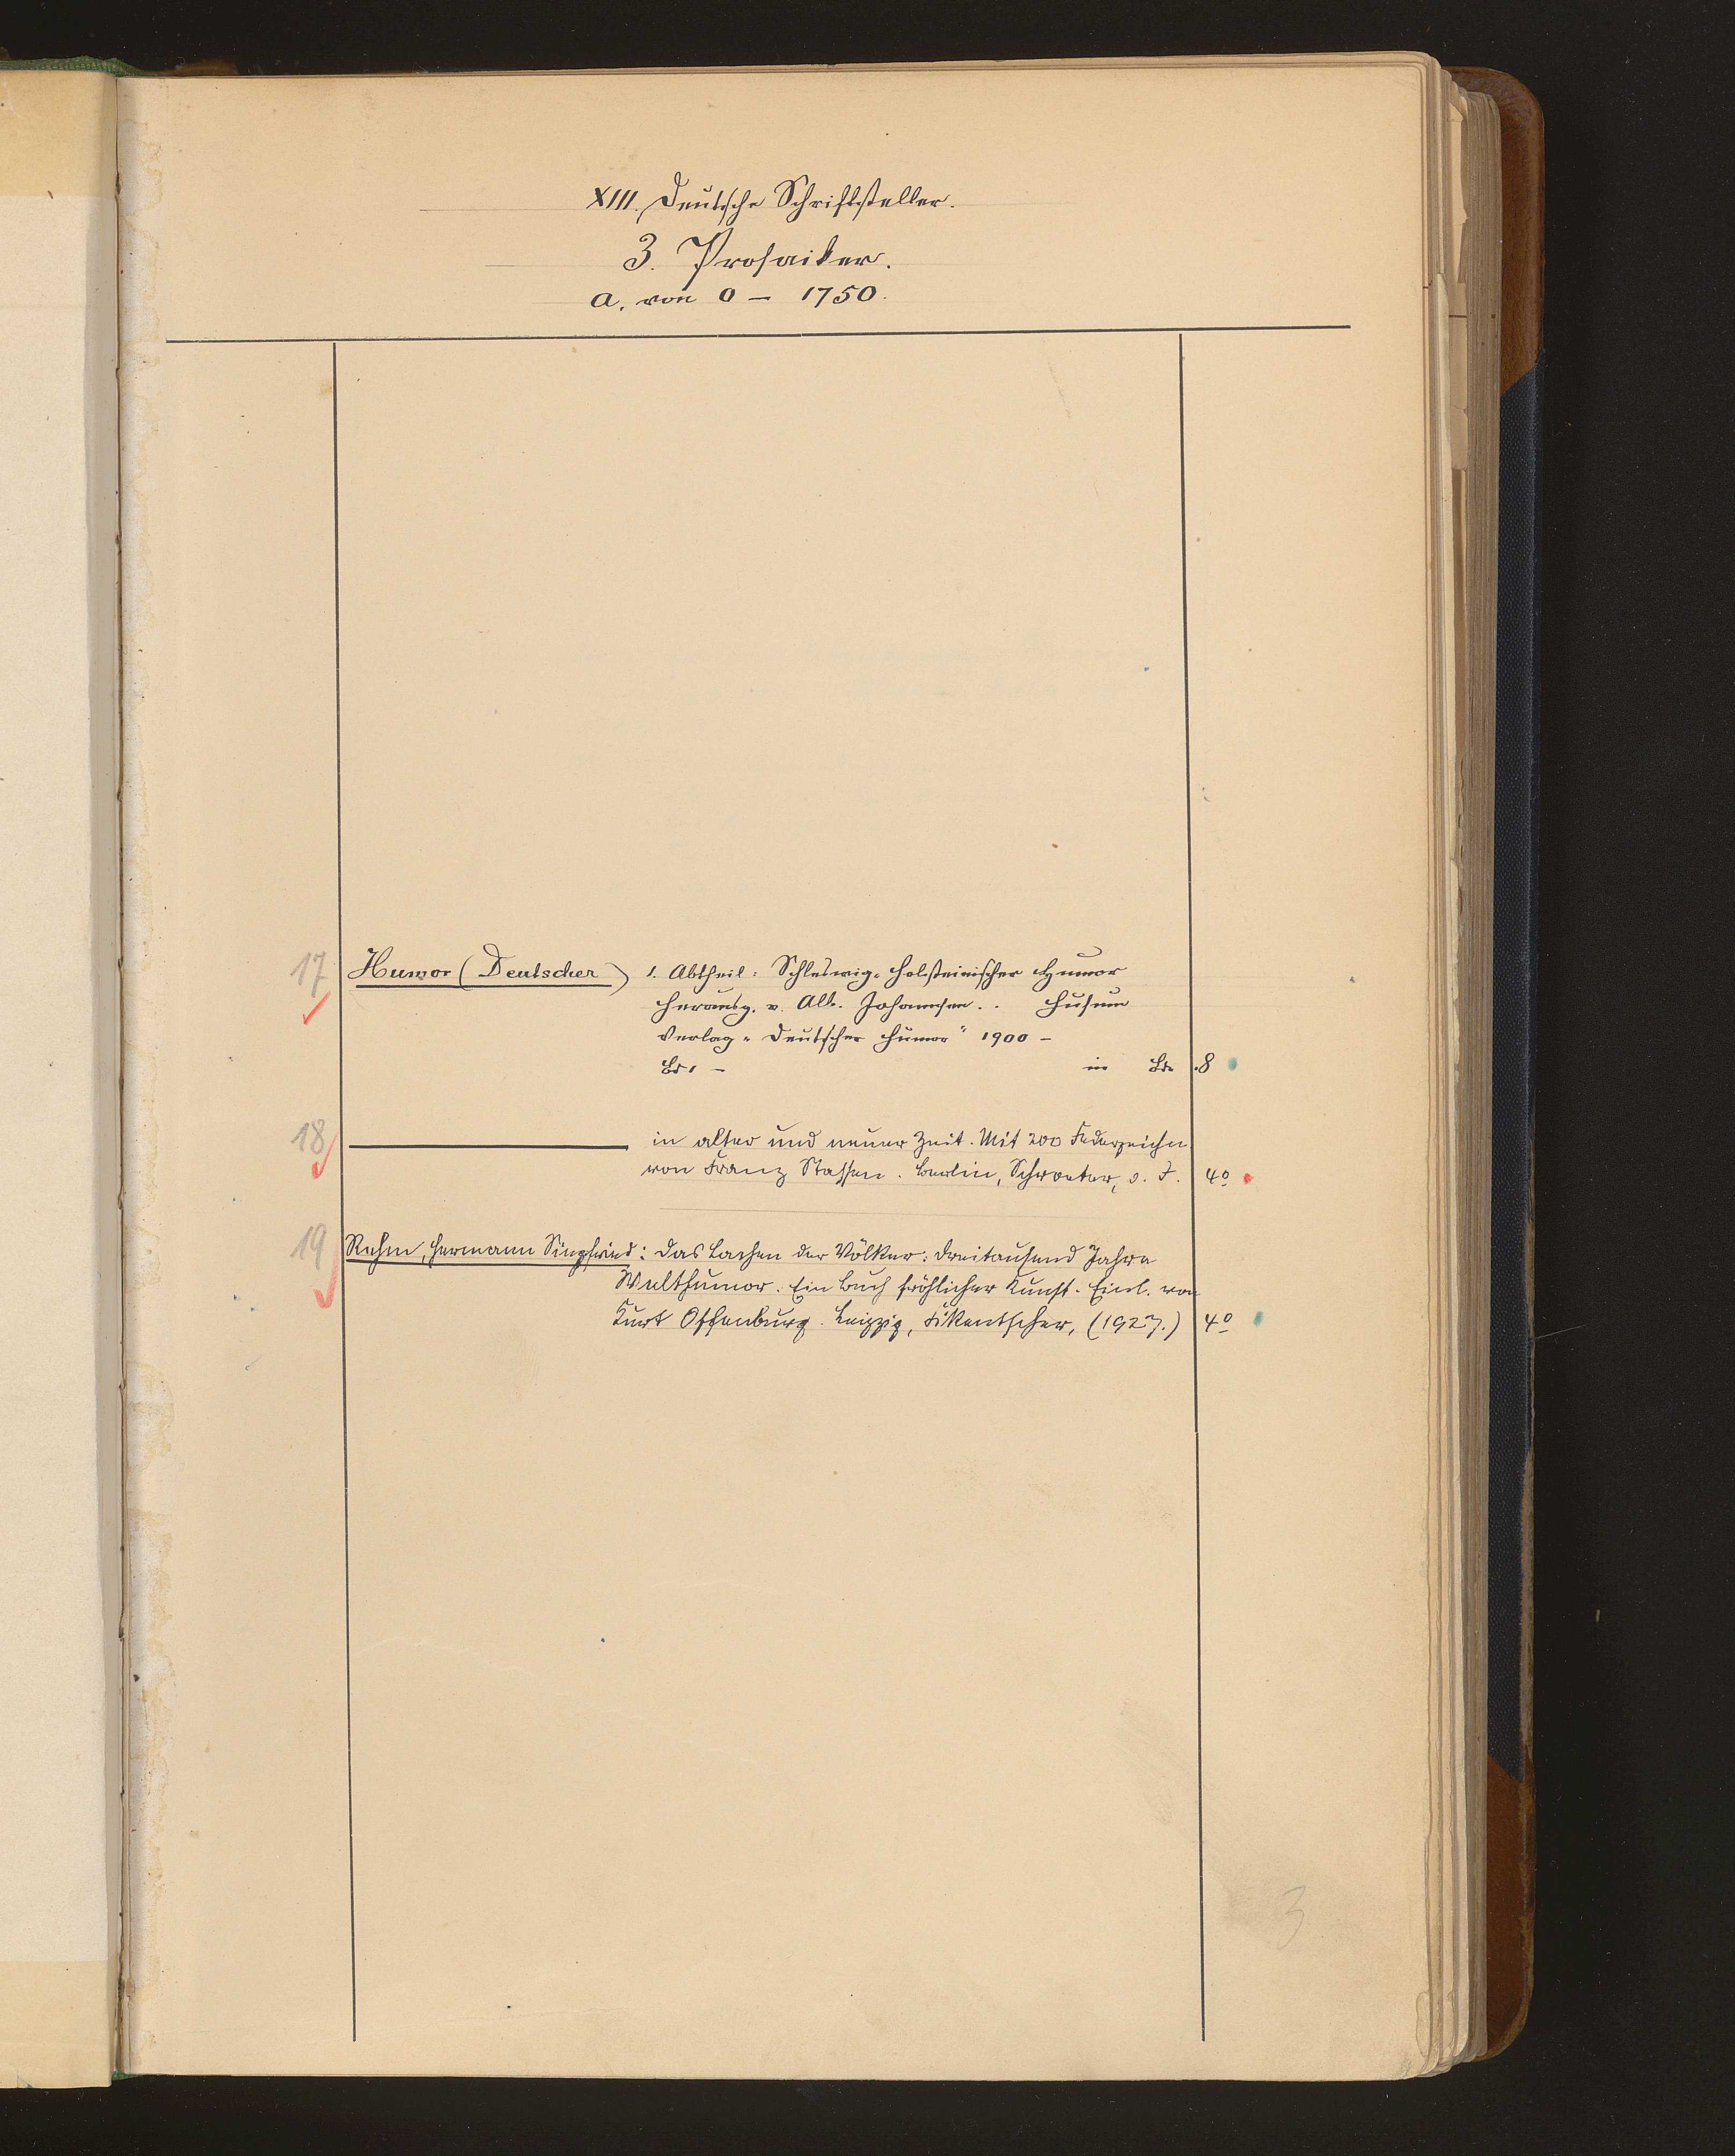 XIII. Deutsche Schriftsteller.
3. Prosaiker.
a. von 0 – 1750.
17 Humor (Deutscher) 1. Abtheil: Schleswig-Holsteinischer Humor
Herausg. v. Alb. Johannsen.. Husum
Verlag „Deutscher Humor“ 1900 –
Bd 1 – in Bdn .8
18 ——— in alter und neuer Zeit. Mit 200 Federzeichn
von Franz Stassen. Berlin, Schroeter, o. J. 4º
19 Rehm, Hermann Siegfried: Das Lachen der Völker: Dreitausend Jahre
Welthumor. Ein Buch fröhlicher Kunst. Einl. von
Kurt Offenburg. Leipzig, Fikentscher, (1927.) 4º
3